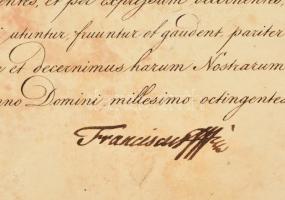 et per expressum decernimus,
utuntur, fruuntur et gaudent, pariter
et decernimus harum Nostrarum
Domini millesimo octingentes
Franciscus